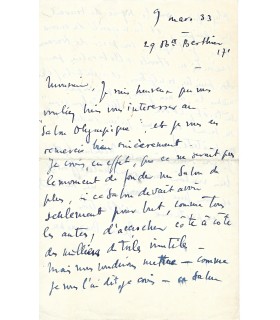 9 mars 33
29 Bd Berthier
17e
Monsieur, Je suis heureux que vous
vouliez bien vous intéresser au
"Salon Olympique" et je vous en
remercie bien sincèrement.
Je crois, en effet, que ce ne serait pas
le moment de fonder un Salon de
plus, si ce Salon devait avoir
seulement pour but, comme tous
les autres, d'accrocher côte à côte
des milliers de toiles inutiles -
mais nous voudrions mettre - comme
je vous l'ai dit je crois - ce Salon